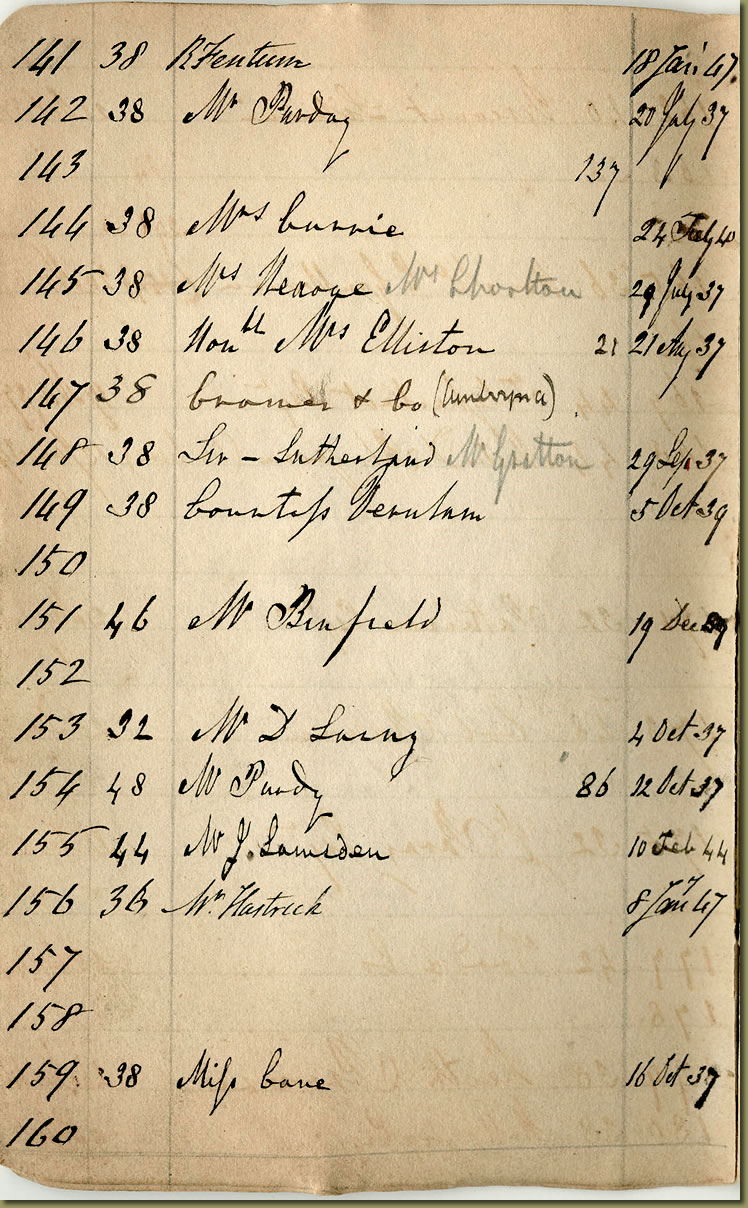 141 38 R Fentum 18 Jan 47.
142 38 Mr Purday 20 July 37
143 137
144 38 Mrs Currie 24 Feby 40
145 38 Mrs George Mrs Chorlton 29 July 37
146 38 Honble Mrs Elliston 21 21 Aug 37
147 38 Cramer & Co
148 38 Sutherland Mr Gretton 29 Sep. 37
149 38 Countess Verulam 5 Oct 39
150
151 46 Mr Binfield 19 Dec 39
152
153 32 Mr D Loeng 4 Oct 37
154 48 Mr Purdy 86 12 Oct 37
155 44 Mr J. Lumsden 10 Feb 44
156 36 Mr. Hastrick 8 Jany 47
157
158
159 38 Miss Cave 16 Oct 37
160